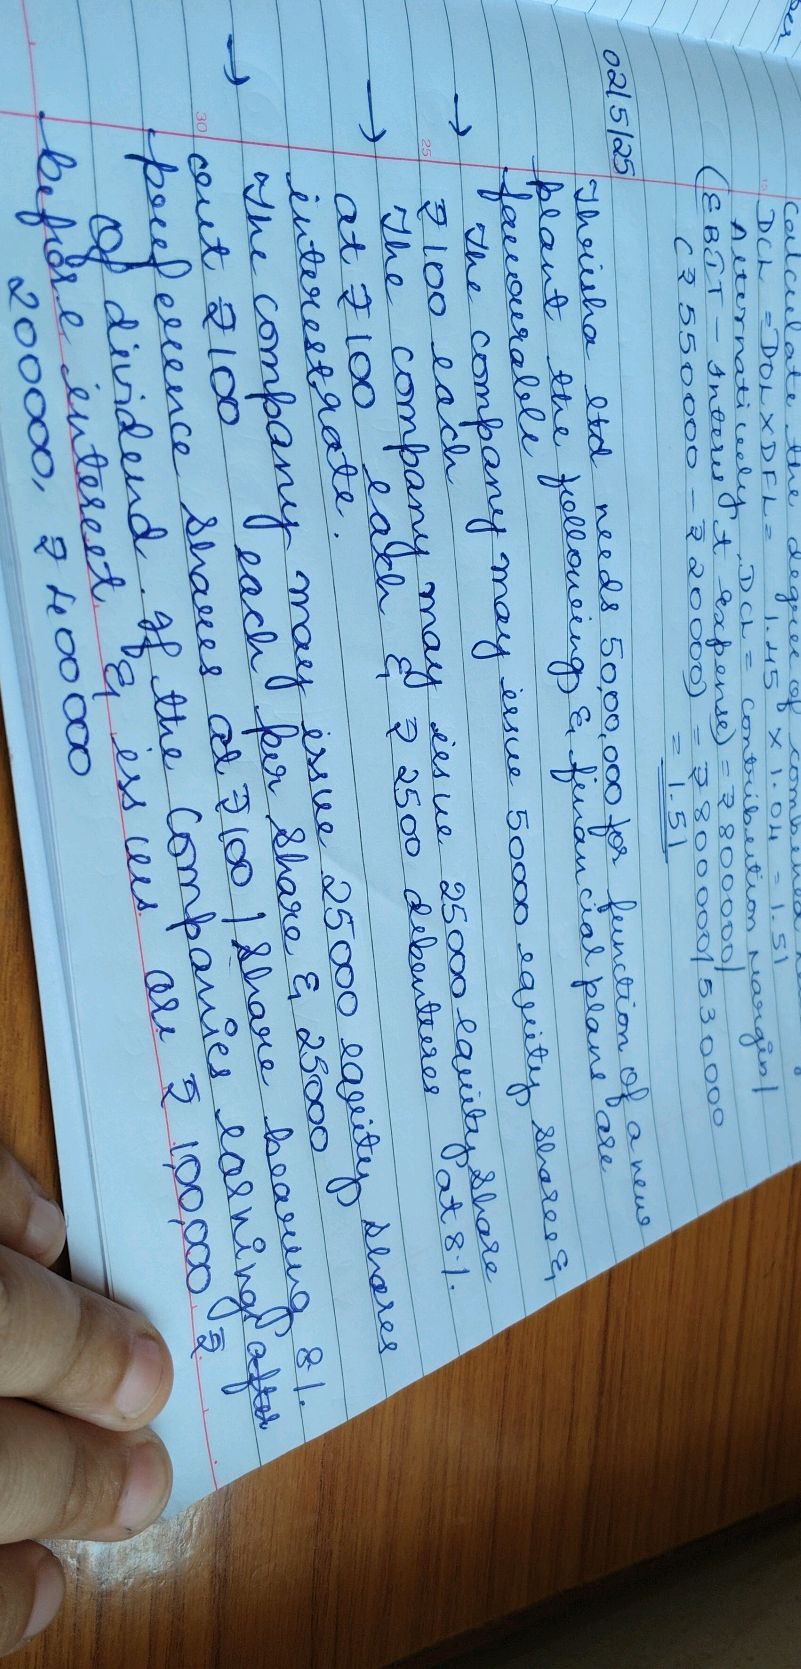 Calculate the degree of combined
DCL = DOL X DFL = 1.45 X 1.04 = 1.51
Alternatively DCL = Contribution Margin/
(EBIT - Interest expense) = ₹800000/
(₹550000 - ₹20000) = ₹800000/530000
= 1.51
15
02/5/25
Thrisha Ltd needs 50,00,000 for function of a new
plant the following & financial plans are
favourable
→ The company may issue 50000 equity shares &
₹100 each
25
→ The company may issue 25000 equity share
at ₹100 each & ₹2500 debentures at 8%.
interest rate.
→ The company may issue 25000 equity shares
cut ₹100 each for share & 25000
30
preference shares at ₹100 / share bearing 8%.
of dividend. If the companies earning after
before interest & issues are ₹1,00,000 ₹
200000, ₹400000